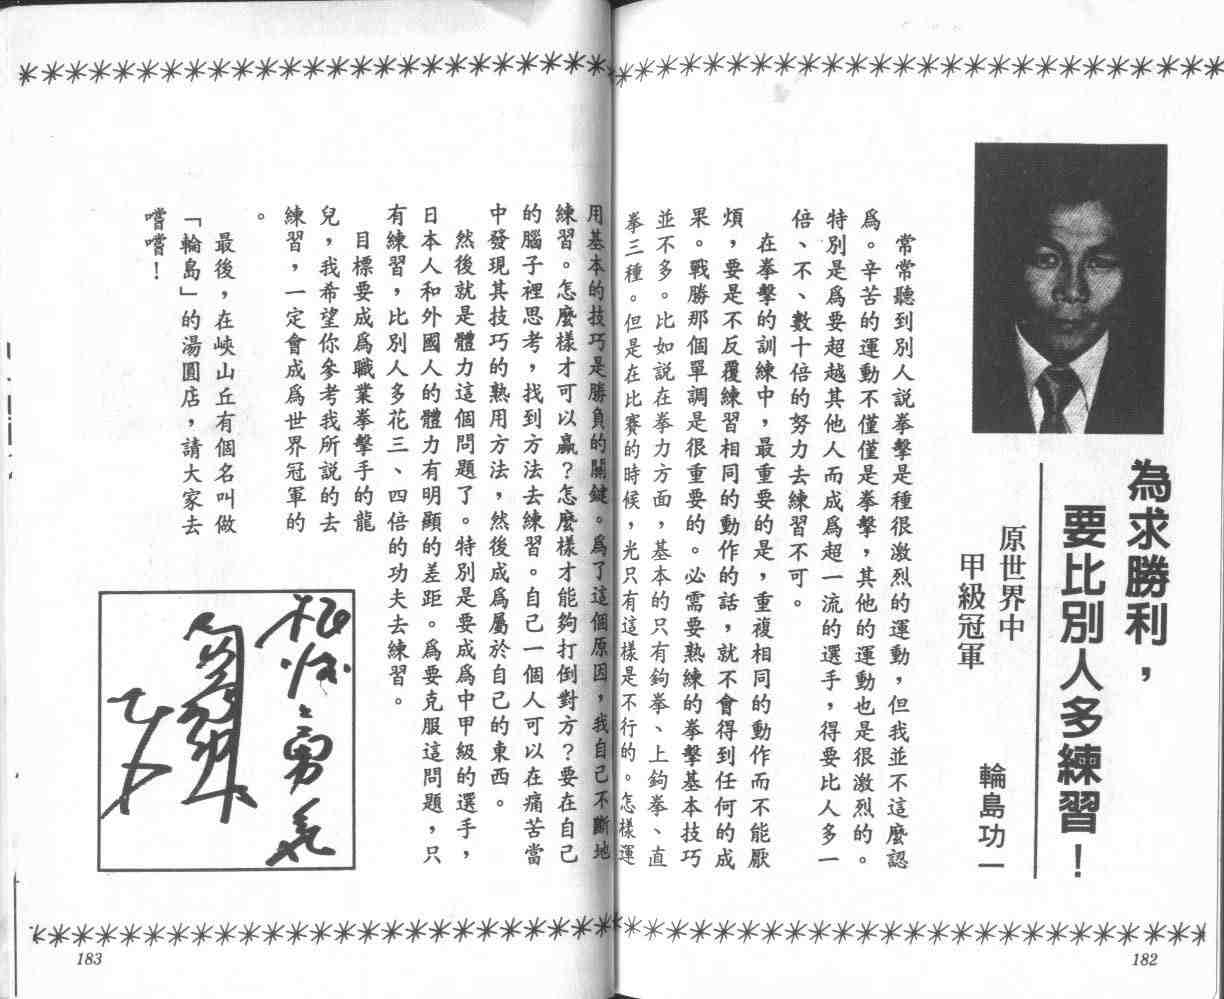 為求勝利，
要比別人多練習！
原世界中
甲級冠軍
輪島功一
常常聽到別人說拳擊是種很激烈的運動，但我並不這麼認
爲。辛苦的運動不僅僅是拳擊，其他的運動也是很激烈的。
特別是爲要超越其他人而成爲超一流的選手，得要比人多一
倍、不、數十倍的努力去練習不可。
在拳擊的訓練中，最重要的是，重複相同的動作而不能厭
煩，要是不反覆練習相同的動作的話，就不會得到任何的成
果。戰勝那個單調是很重要的。必需要熟練的拳擊基本技巧
並不多。比如說在拳力方面，基本的只有鉤拳、上鉤拳、直
拳三種。但是在比賽的時候，光只有這樣是不行的。怎樣運
182
用基本的技巧是勝負的關鍵。爲了這個原因，我自己不斷地
練習。怎麼樣才可以贏？怎麼樣才能夠打倒對方？要在自己
的腦子裡思考，找到方法去練習。自己一個人可以在痛苦當
中發現其技巧的熟用方法，然後成爲屬於自己的東西。
然後就是體力這個問題了。特別是要成爲中甲級的選手，
日本人和外國人的體力有明顯的差距。爲要克服這問題，只
有練習，比別人多花三、四倍的功夫去練習。
目標要成爲職業拳擊手的龍
兒，我希望你參考我所說的去
練習，一定會成爲世界冠軍的
。
最後，在峽山丘有個名叫做
「輪島」的湯圓店，請大家去
嚐嚐！
183